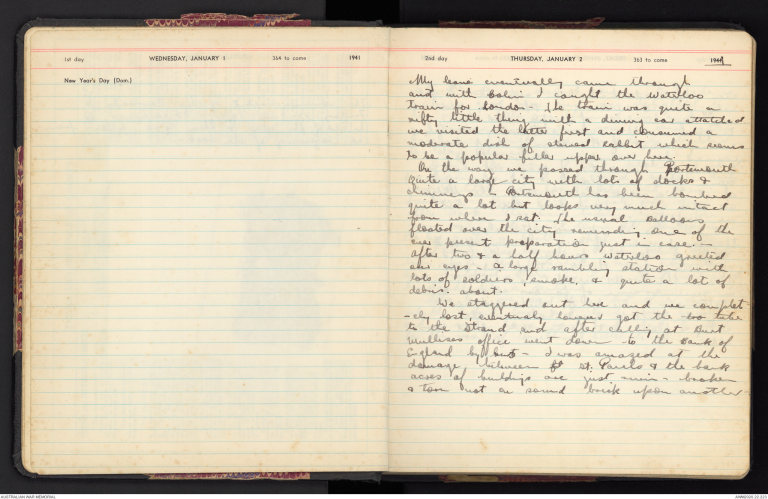 1st day WEDNESDAY, JANUARY 1 364 to come 1941
New Year's Day (Dom.)
2nd day THURSDAY, JANUARY 2 363 to come 1941
My leave eventually came through
and with Colin I caught the Waterloo
train for London - The train was quite a
nifty little thing with a dining car attatched
we visited the latter first and consumed a
moderate dish of stewed rabbit which seems
to be a popular filler upper over here.
On the way we passed through Portsmouth
quite a large city with lots of docks &
chimneys - Portsmouth has been bombed
quite a lot but looks very much intact
from where I sat. The usual balloons
floated over the city reminding one of the
ever present preparation just in case. -
After two & a half hours Waterloo greeted
our eyes - a large rambling station with
lots of soldiers, smoke, & quite a lot of
debris about.
We staggered out here and we complet
-ely lost, eventualy however got the tube
to the Strand and after calling at Burt
office went down to the Bank of
England by bus - I was amazed at the
damage between St. Pauls & the bank
acres of buildings are just - ruin - broken
& torn not on sound brick upon another -
AUSTRALIAN WAR MEMORIAL